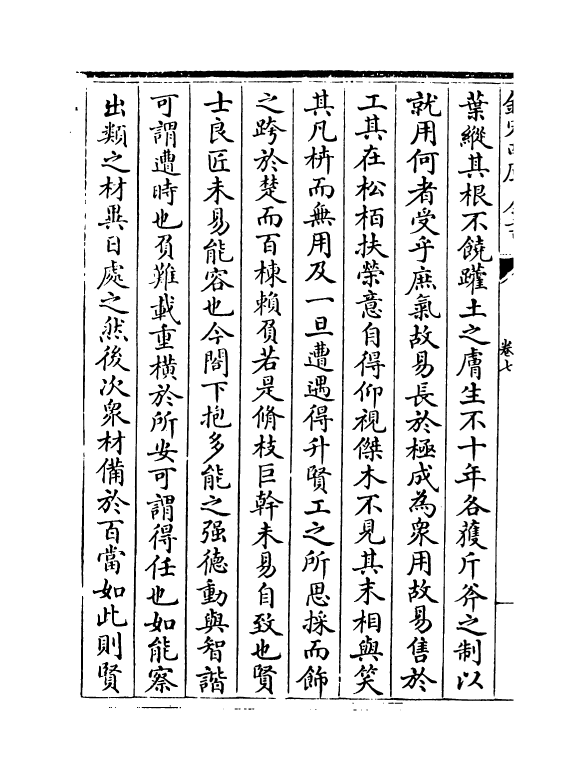 卷七
葉縱其根不饒蹮土之膚生不十年各獲斤斧之制以
就用何者受乎庶氣故易長於極成為衆用故易售於
工其在松栢扶榮意自得仰視傑木不見其末相與笑
其凡枿而無用及一旦遭遇得升賢工之所思採而飾
之跨於楚而百棟賴負若是脩枝巨幹未易自致也賢
士良匠未易能容也今閤下抱多能之强德動與智諧
可謂遭時也負難載重橫於所安可謂得任也如能察
出類之材異日處之然後次衆材備於百當如此則賢